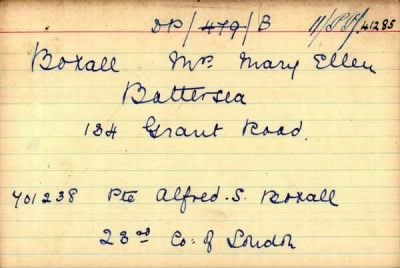 DP/479/B 11/P.P/41285
Boxall Mrs Mary Ellen
Battersea
134 Grant Road.
701238 Pte Alfred. S. Boxall
23rd Co: of London